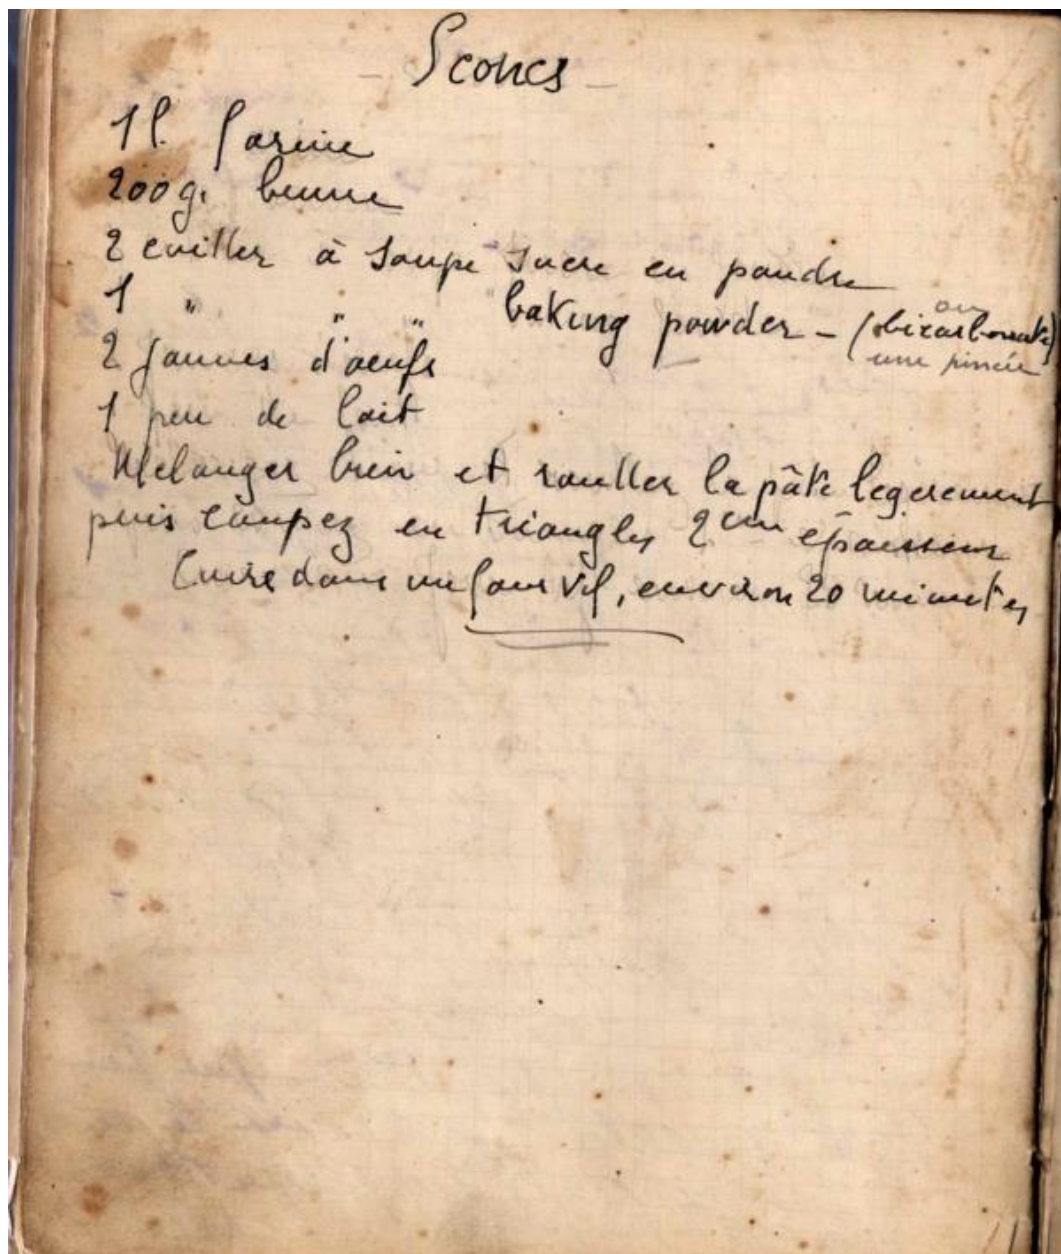 - Scones -
1 l. farine
200 g. beurre
2 cuiller à soupe sucre en poudre
1 " " " baking powder - (ou bicarbonate)
une pincée
2 jaunes d'oeufs
1 peu de lait
Melanger bien et rouller la pâte legerement
puis coupez en triangles 2 cm épaisseur
Cuire dans un four vif, environ 20 minutes